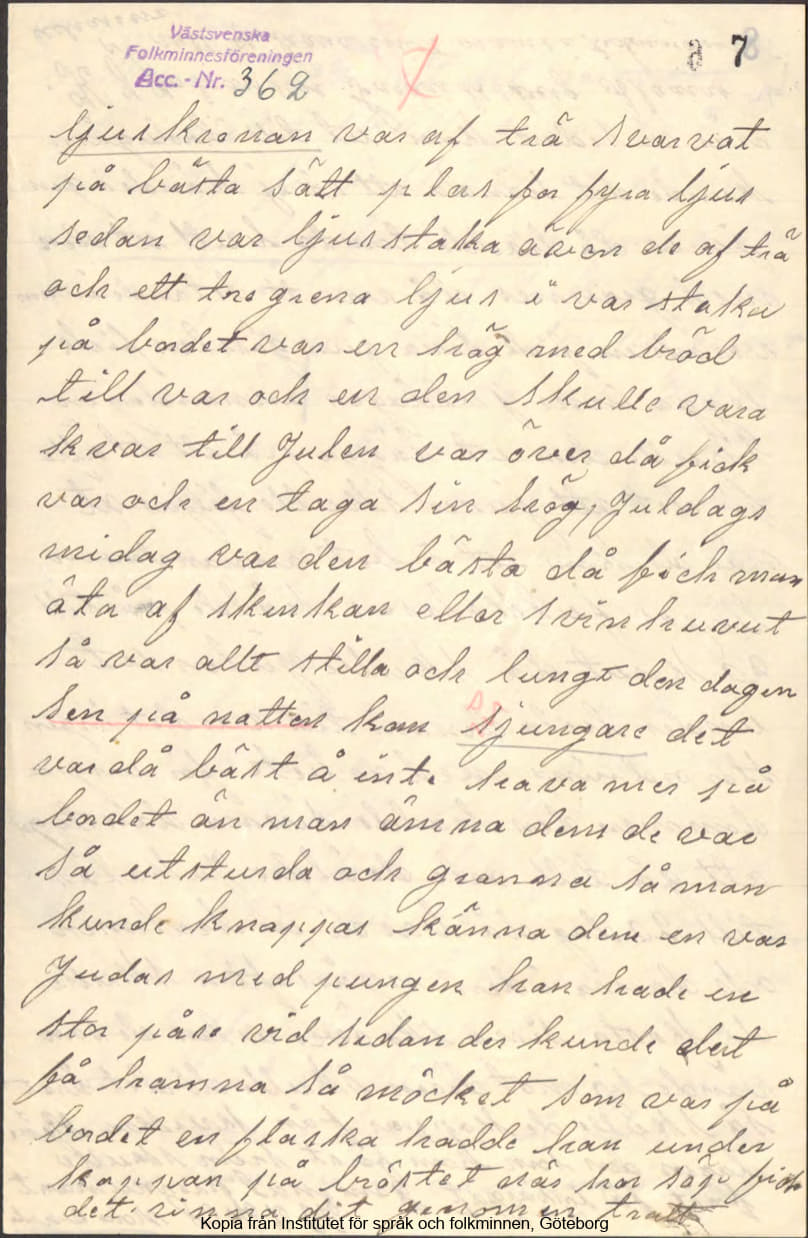 Västsvenska
Folkminnesföreningen
Acc.-Nr. 362
7
ljuskronan var af trä svarvat
på bästa sätt plas for fyra ljus
sedan var ljusstaka även de af trä
och ett tregrena ljus i var staka
på bordet var en hög med bröd
till var och en den skulle vara
kvar till Julen var över då fick
var och en taga sin hög, Juldags
midag var den bästa då fick man
äta af skinkan eller svinhuvut
så var allt stilla och lungt den dagen
sen på natten kom sjungare det
var då bäst å inte hava mer på
bordet än man ämna dem de var
så utsturda och granna så man
kunde knappas känna dem en var
Judas med pungen han hade en
stor påse vid sidan der kunde det
få hamna så möcket som var på
bordet en flaska hadde han under
kappan på bröstet när han söp fick
det rinna dit genom en tratt
Kopia från Institutet för språk och folkminnen, Göteborg